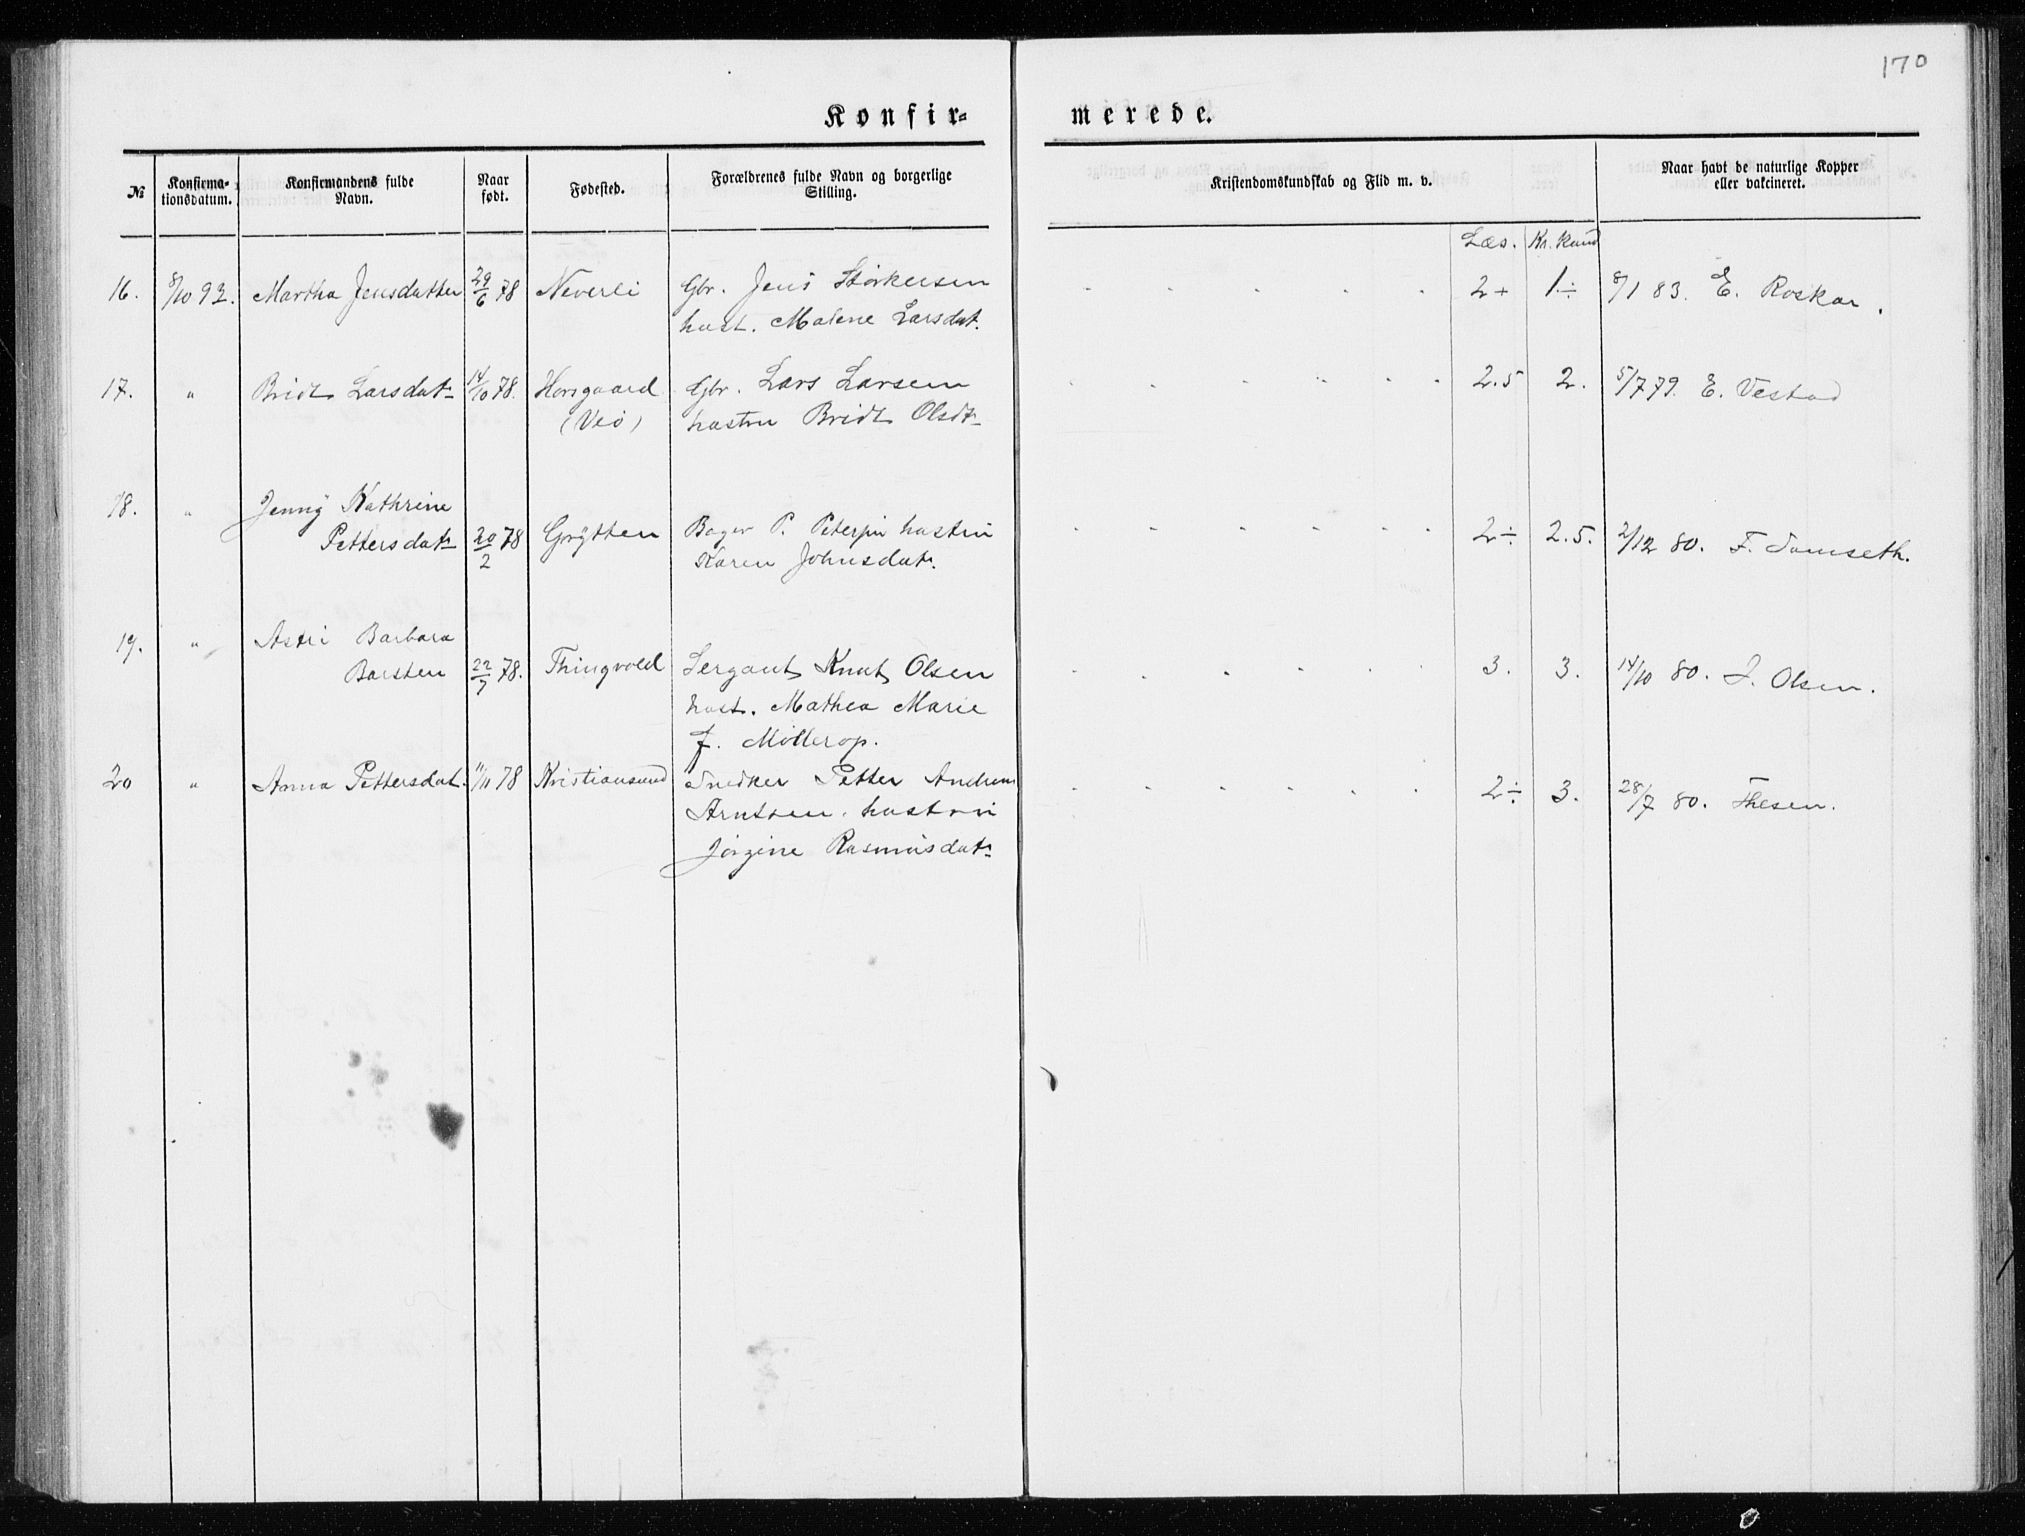 170
Konfir-
merede.
№
Konfirma-
tionsdatum.
Konfirmandens fulde
Navn.
Naar
født.
Fødested.
Forældrenes fulde Navn og borgerlige
Stilling.
Kristendomskundskab og Flid m. v.
Naar havt de naturlige Kopper
eller vakcineret.
Læs. Kr. kund
16. 8/10 92. Martha Jensdatter 29/6 78 Neverli Gbr. Jens Størkersen 2+ 1÷ 8/1 83. E. Roskar.
hust. Malene Larsdat.
17. " Bridt Larsdatr 14/10 78. Horsgaard Gbr. Lars Larsen 2.5 2. 5/7 79. E. Vestad
(Veø) hustru Bridt Olsdtr
18. " Jenny Kathrine
Pettersdatr 20/2 78 Grytten Bager P. hustru 2÷ 2.5. 2/12 80. F.
Karen Johnsdatr.
19. " Astri Barbara
Barsten 22/7 78. Thingvold Sergant Knut Olsen 3. 3. 14/10 80. J. Olsen.
hust. Mathea Marie
f. Møllerop.
20 " Anna Pettersdat. 11/11 78 Kristiansund Snedker Petter Andreas 2÷ 3. 28/7 80. Thesen.
Arntsen. hustru
Jørgine Rasmusdatr